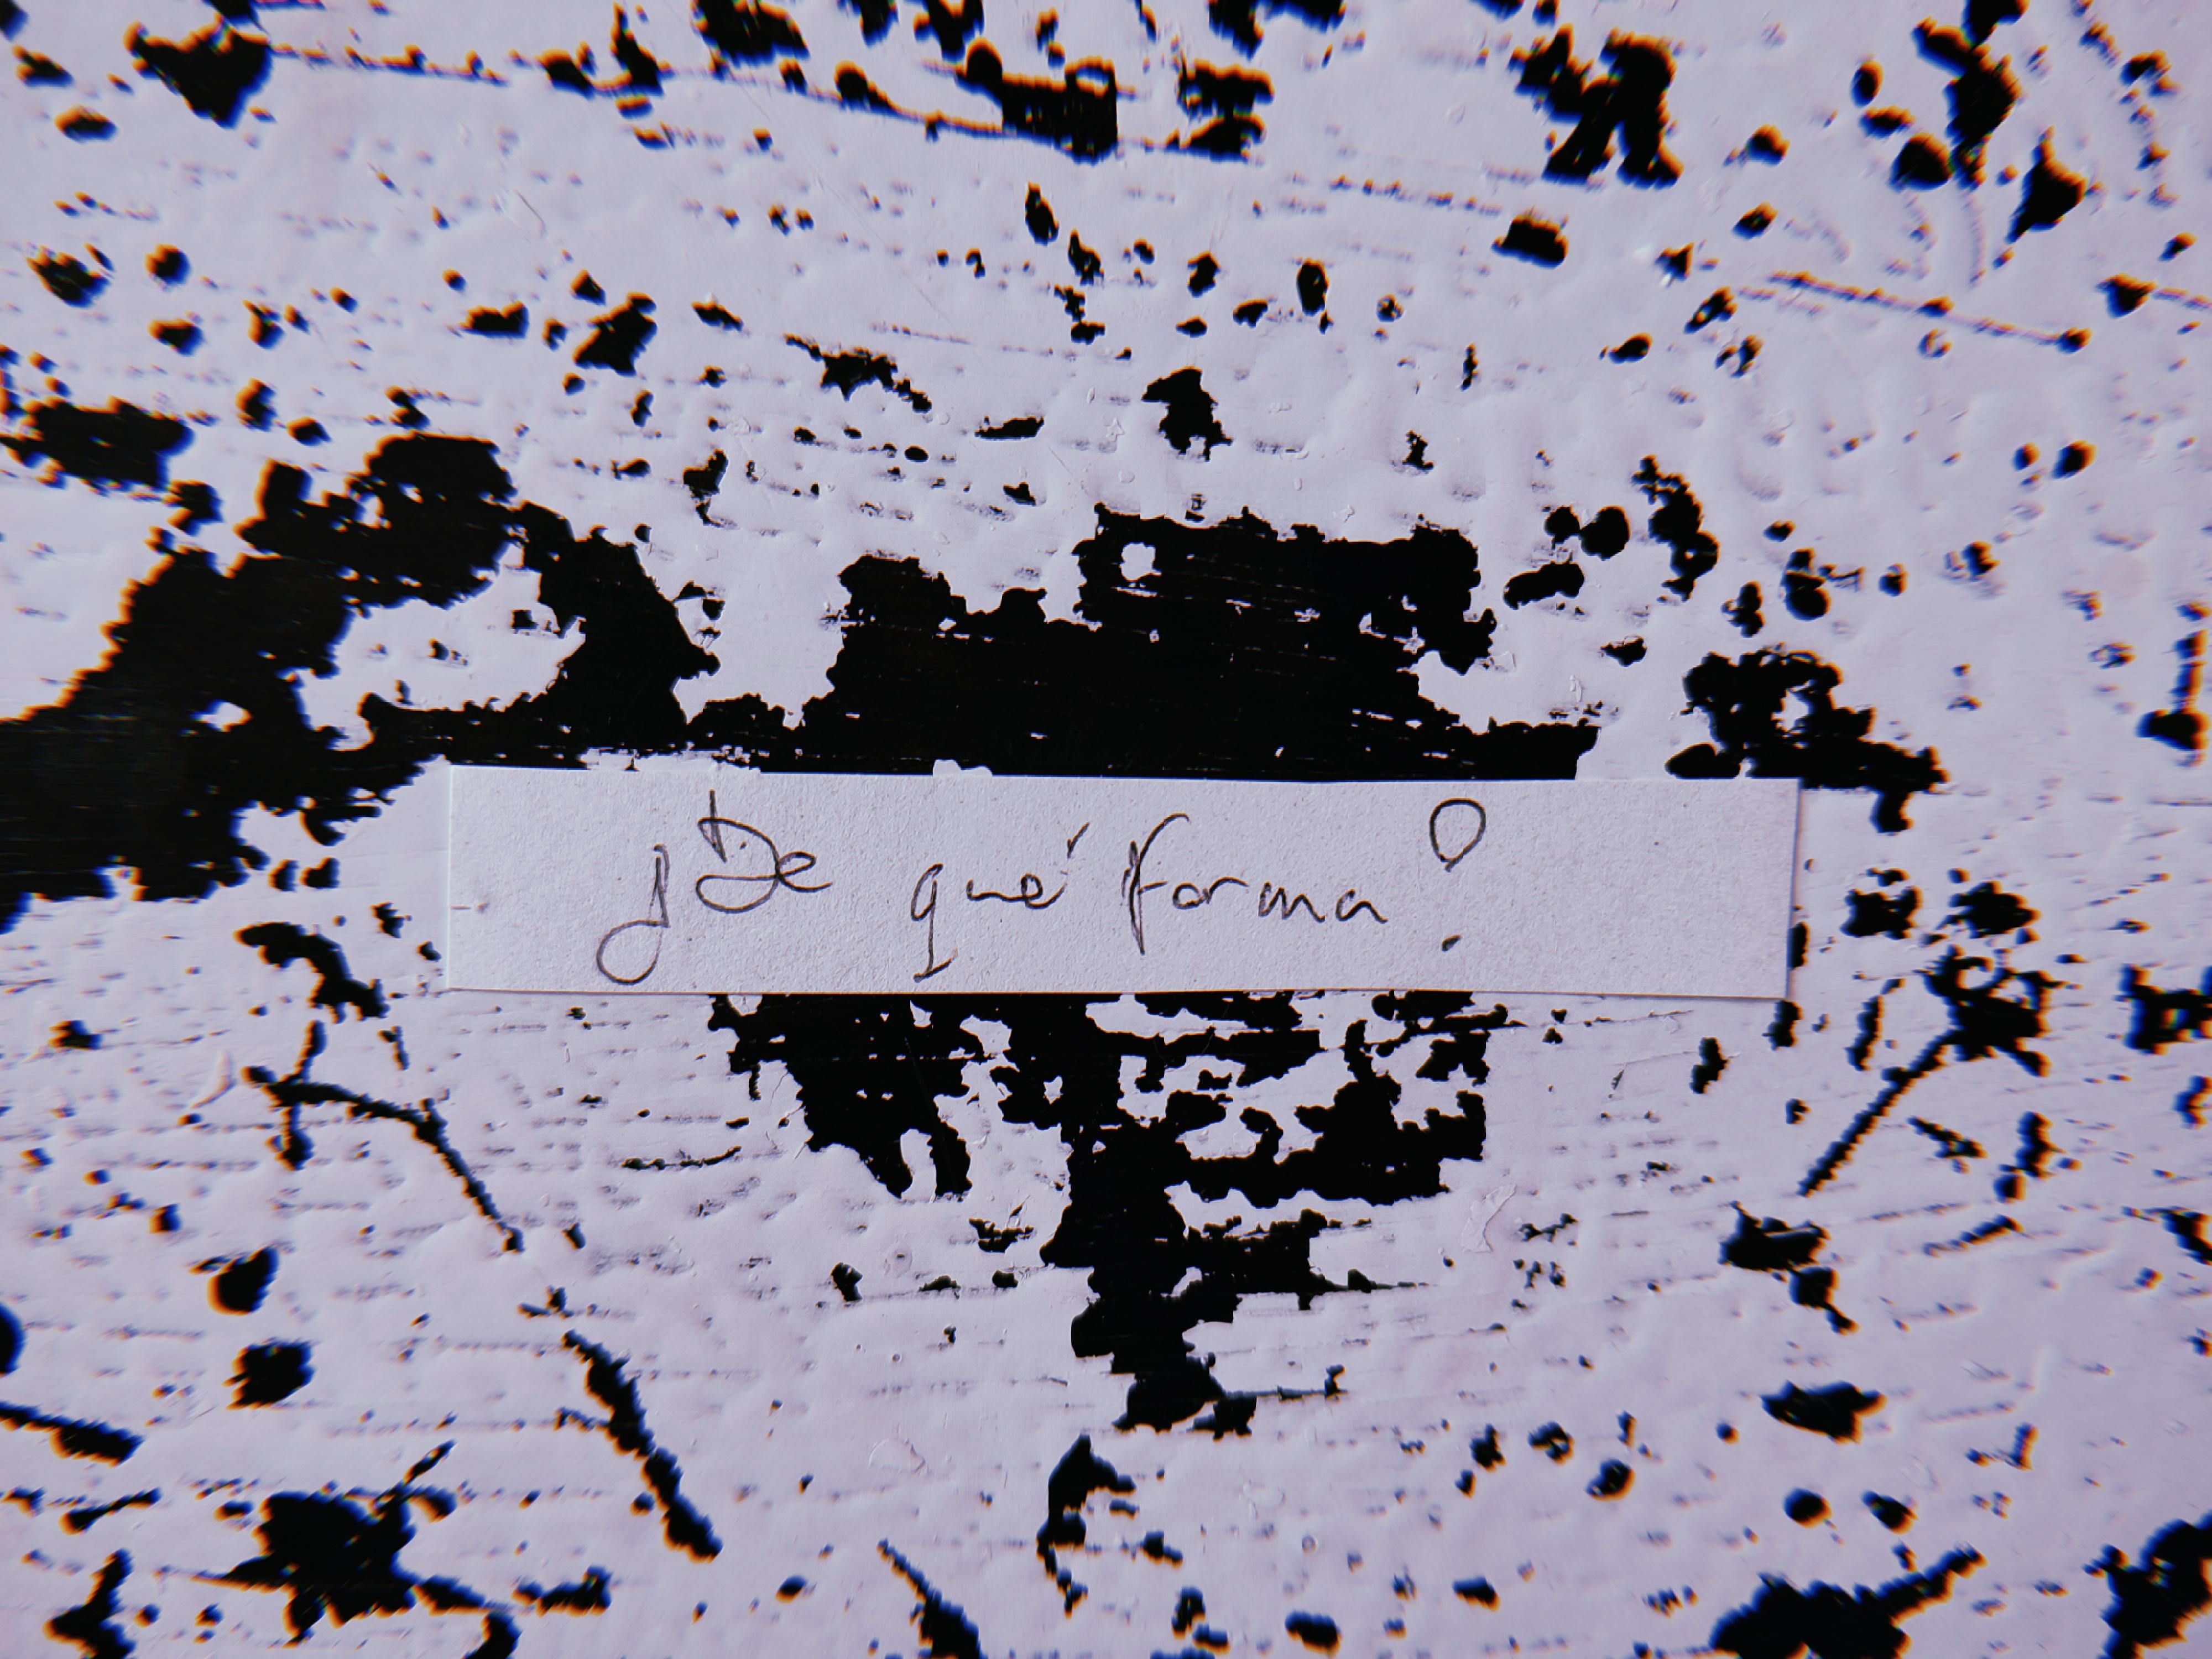 ¿De qué forma?